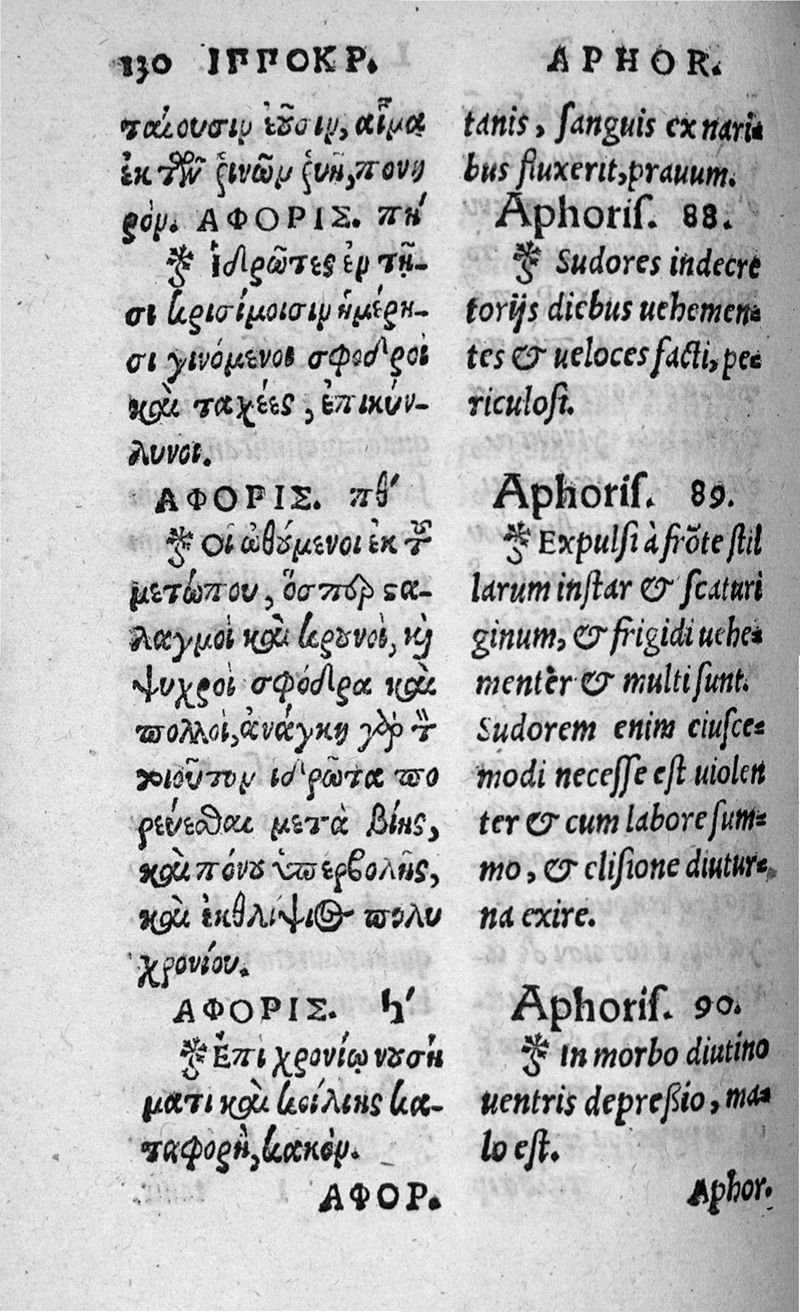 130 ΙΠΠΟΚΡ.
ταίουσιν ἐοῦσιν, αἷμα
ἐκ τῶν ῥινῶν ῥυῇ, πονη
ρόν. ΑΦΟΡΙΣ. πή
Ἱδρῶτες ἐν τῇ-
σι κρισίμοισιν ἡμέρῃ-
σι γινόμενοι σφοδροὶ
καὶ ταχέες, ἐπικύν-
λυνοι.
ΑΦΟΡΙΣ. πθ'
Οἱ ὠθούμενοι ἐκ τοῦ
μετώπου, ὅσπερ στα-
λαγμοὶ καὶ κρουνοὶ, καὶ
ψυχροὶ σφόδρα καὶ
πολλοὶ, ἀνάγκη γὰρ τὸν
τοιοῦτον ἱδρῶτα πο
ρεύεσθαι μετὰ βίης,
καὶ πόνου ὑπερβολῆς,
καὶ ἐκθλίψιος πολυ
χρονίου.
ΑΦΟΡΙΣ. ϟ'
Ἐπὶ χρονίῳ νουσή
ματι καὶ κοίλιης κα-
ταφορὴ, κακόν.
ΑΦΟΡ.
APHOR.
tanis, sanguis ex nari-
bus fluxerit, prauum.
Aphoris. 88.
Sudores indecre
torijs diebus uehemen-
tes & ueloces facti, pe-
riculosi.
Aphoris. 89.
Expulsi à frõte stil
larum instar & scaturi
ginum, & frigidi uehe-
menter & multi sunt.
Sudorem enim eiusce-
modi necesse est uiolen
ter & cum labore sum-
mo, & elisione diutur-
na exire.
Aphoris. 90.
In morbo diutino
uentris depressio, ma-
lo est.
Aphor.